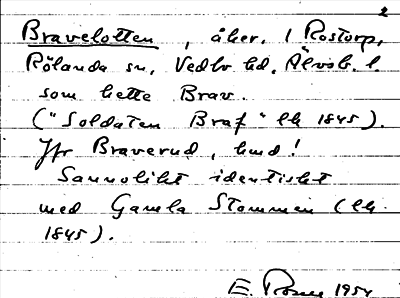 2
Bravelotten, åker, i Rostorp,
Rölanda sn, Vedbo hd, Älvsb. l.
som hette Brav.
("Soldaten Braf" lh 1845).
Jfr Braverud, hmd!
Sannolikt identiskt
med Gamla Stommen (lh
1845).
E. 1954